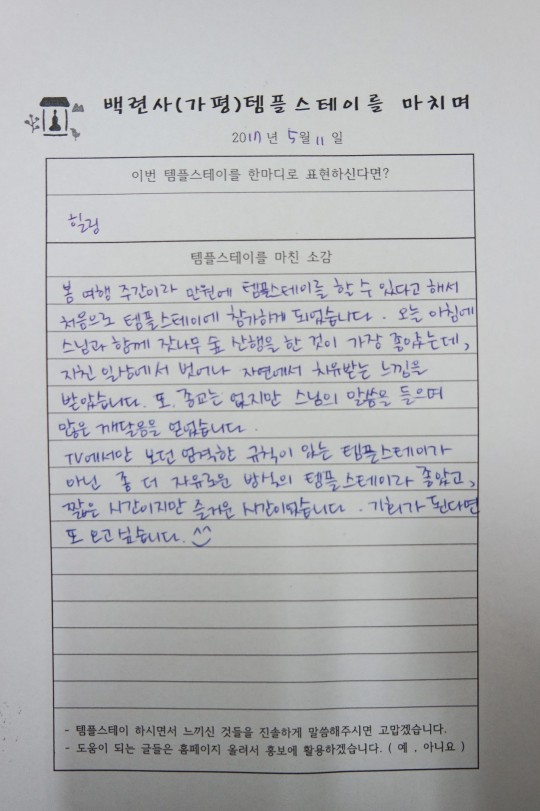 백련사(가평)템플스테이를 마치며
2017년 5월 11일
이번 템플스테이를 한마디로 표현하신다면?
힐링
템플스테이를 마친 소감
봄 여행 주간이라 만원에 템플스테이를 할 수 있다고 해서
처음으로 템플스테이에 참가하게 되었습니다. 오늘 아침에
스님과 함께 잣나무 숲 산행을 한 것이 가장 좋았는데,
지친 일상에서 벗어나 자연에서 치유받는 느낌을
받았습니다. 또, 종교는 없지만 스님의 말씀을 들으며
많은 깨달음을 얻었습니다.
TV에서만 보던 엄격한 규칙이 있는 템플스테이가
아닌 좀 더 자유로운 방식의 템플스테이라 좋았고,
짧은 시간이지만 즐거운 시간이었습니다. 기회가 된다면
또 오고 싶습니다. ^^
- 템플스테이 하시면서 느끼신 것들을 진솔하게 말씀해주시면 고맙겠습니다.
- 도움이 되는 글들은 홈페이지 올려서 홍보에 활용하겠습니다. ( 예 , 아니요 )